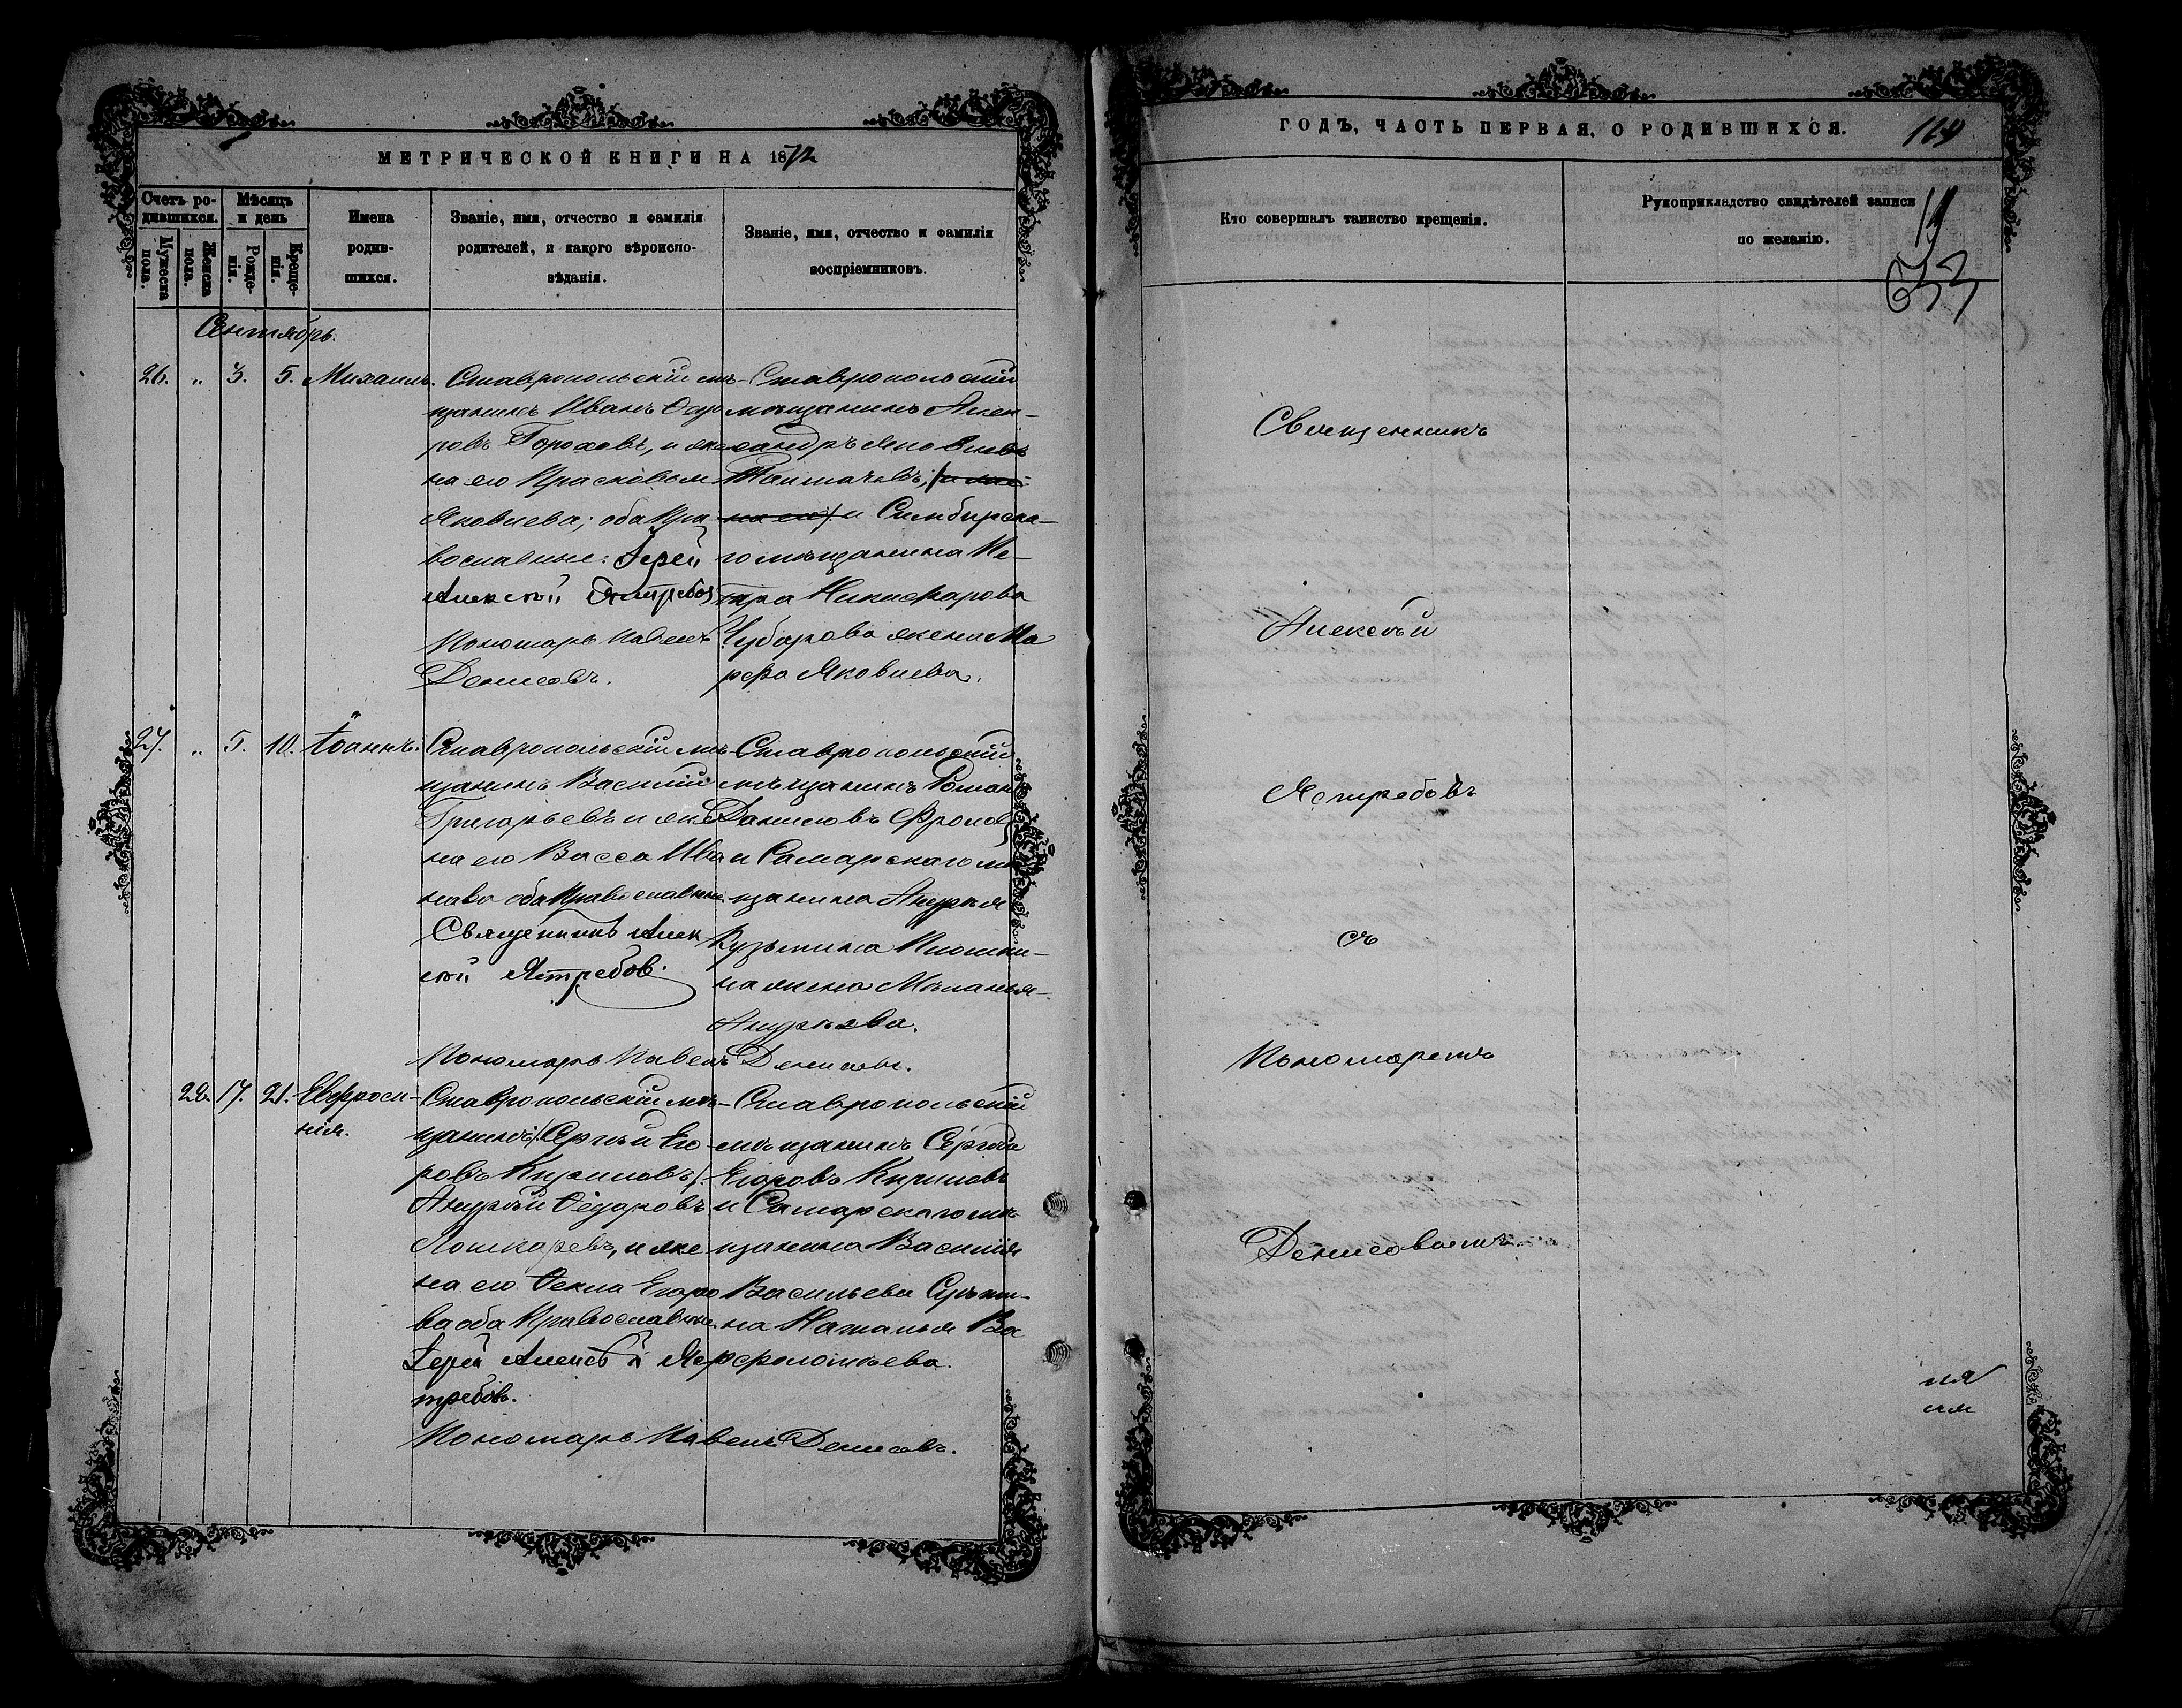 МЕТРИЧЕСКОЙ КНИГИ НА 1872
Счетъ родившихся.
Мужеска пола.
Женска пола.
Мѣсяцъ и день
Рожденія.
Крещенія.
Имена родившихся.
Званіе, имя, отчество и фамилія родителей, и какого вѣроисповѣданія.
Званіе, имя, отчество и фамилія воспріемниковъ.
Сентябрь.
26. „ 3. 5. Михаилъ.
Ставропольскій мѣ-
щанинъ Иванъ Ѳедо
ровъ Гороховъ, и же
на его Прасковья
Яковлева; оба пра
вославные. Іерей
Алексѣй Ястребовъ
Пономарь Павелъ
Денисовъ.
Ставропольскій
мѣщанинъ Алек-
сандръ Яковлевъ
и Симбирска-
го мѣщанина Пе-
тра Никифорова
Чубарова жена Ма
рфа Яковлева.
27. „ 5. 10. Іоаннъ.
Ставропольскій мѣ-
щанинъ Василій
Григорьевъ и же
на его Васса Ива
нова оба православные
Священникъ Алек
сѣй Ястребов.
Ставропольскій
мѣщанинъ Роман
Даниловъ Фролов
и Самарскаго мѣ
щанина Андрея
Кузьмина
на жена Меланья
Андреева.
Пономарь Павелъ Денисовъ.
28. 17. 21. Евфроси-
нія.
Ставропольскій мѣ-
щанинъ Сергѣй Его-
ровъ Кириловъ
Андрей Ѳедоровъ
Лошкаревъ, и же
на его Ѳекла Егоро
ва оба православные
Іерей Алексѣй Яс
требовъ.
Ставропольскій
мѣщанинъ Сергѣй
Егоровъ Кириловъ
и Самарскаго мѣ
щанина Василія
Васильева
на Наталья Ва
рфоломеева.
Пономарь Павелъ Денисовъ.
ГОДЪ, ЧАСТЬ ПЕРВАЯ, О РОДИВШИХСЯ.
Кто совершалъ таинство крещенія.
Рукоприкладство свидѣтелей записи по желанію.
633
Священникъ
Алексѣй
Ястребовъ
съ
Пономаремъ
Денисовымъ